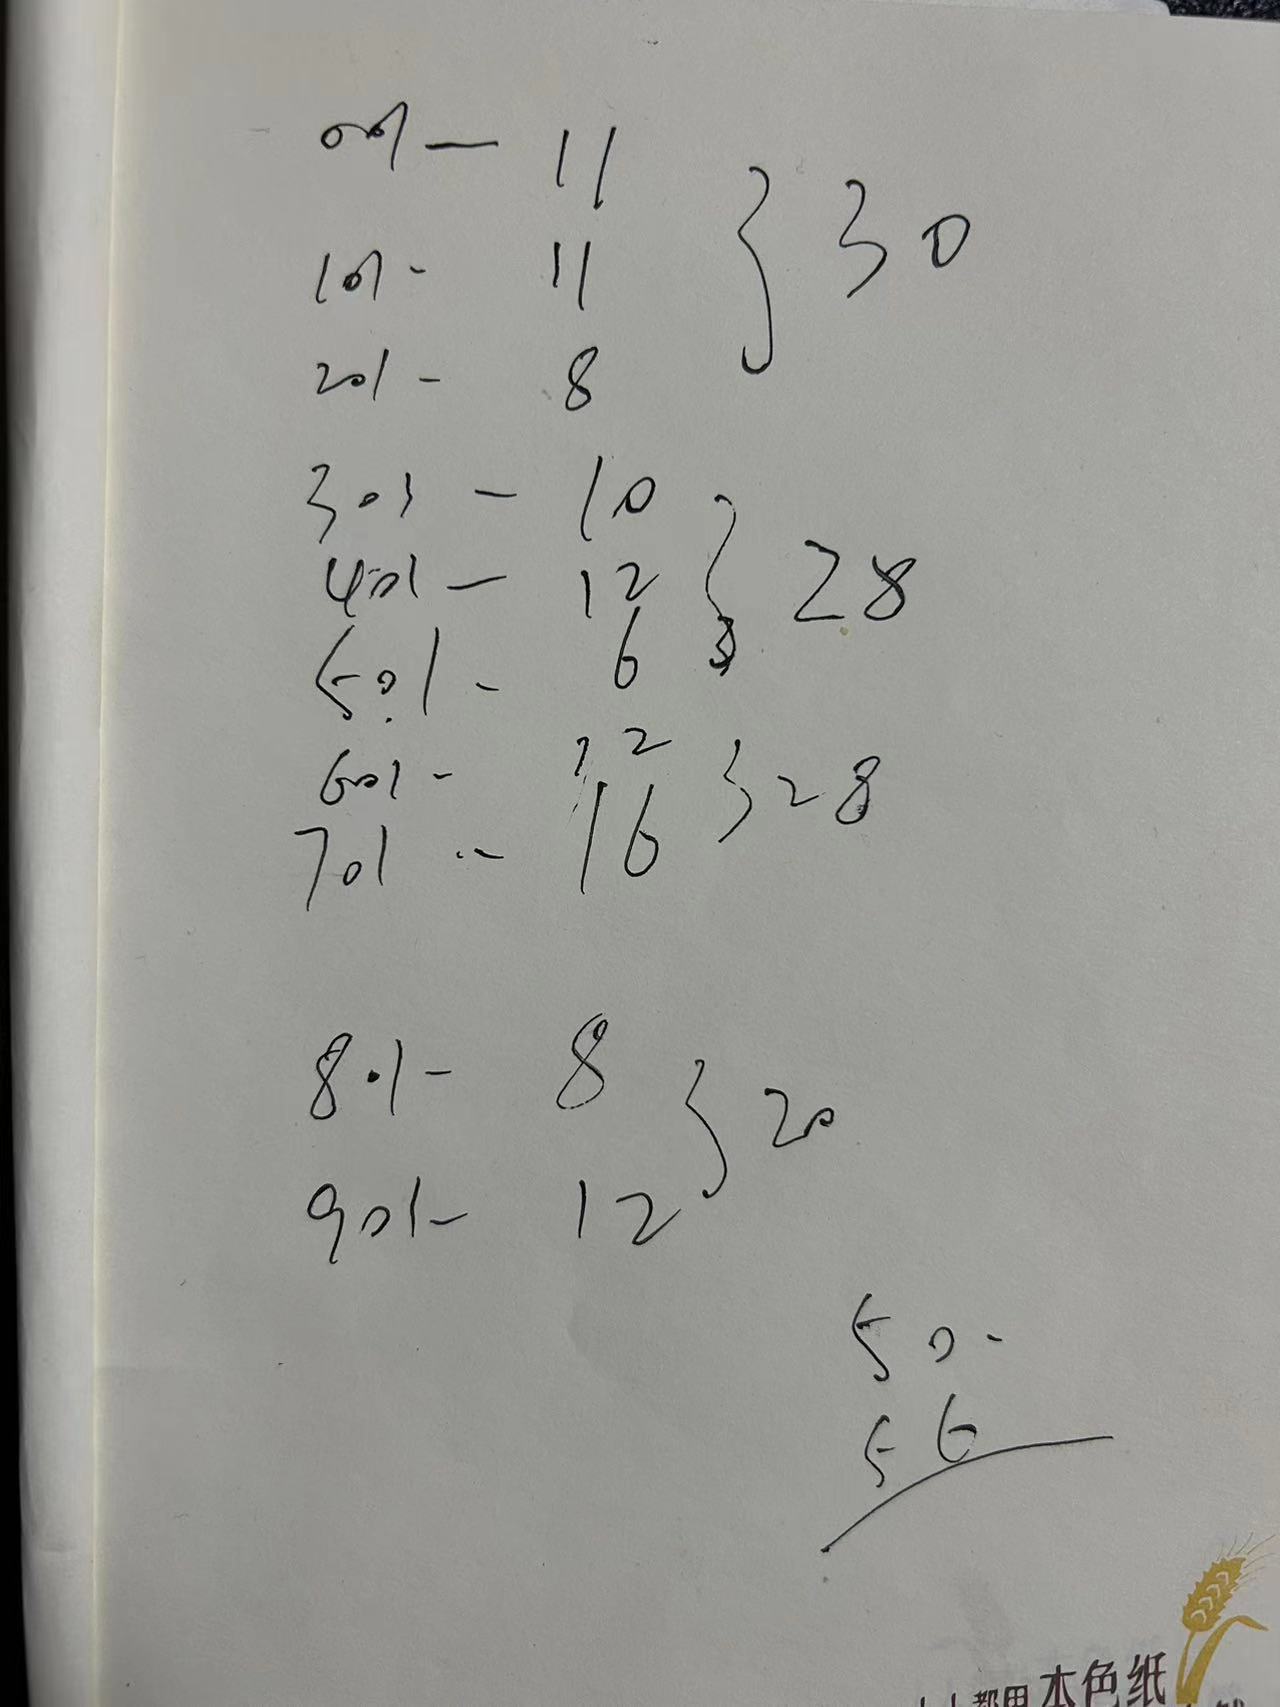 001 — 11
101 - 11
} 30
201 - 8
301 - 10
401 - 12 } 28
501 - 6
601 - 12
} 28
701 - 16
801 - 8
} 20
901 - 12
50 -
56
都用本色纸